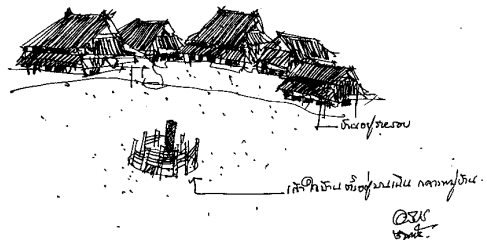 บ้านอยู่รายรอบ
เสาใจบ้าน ตั้งอยู่บนเนิน กลางหมู่บ้าน